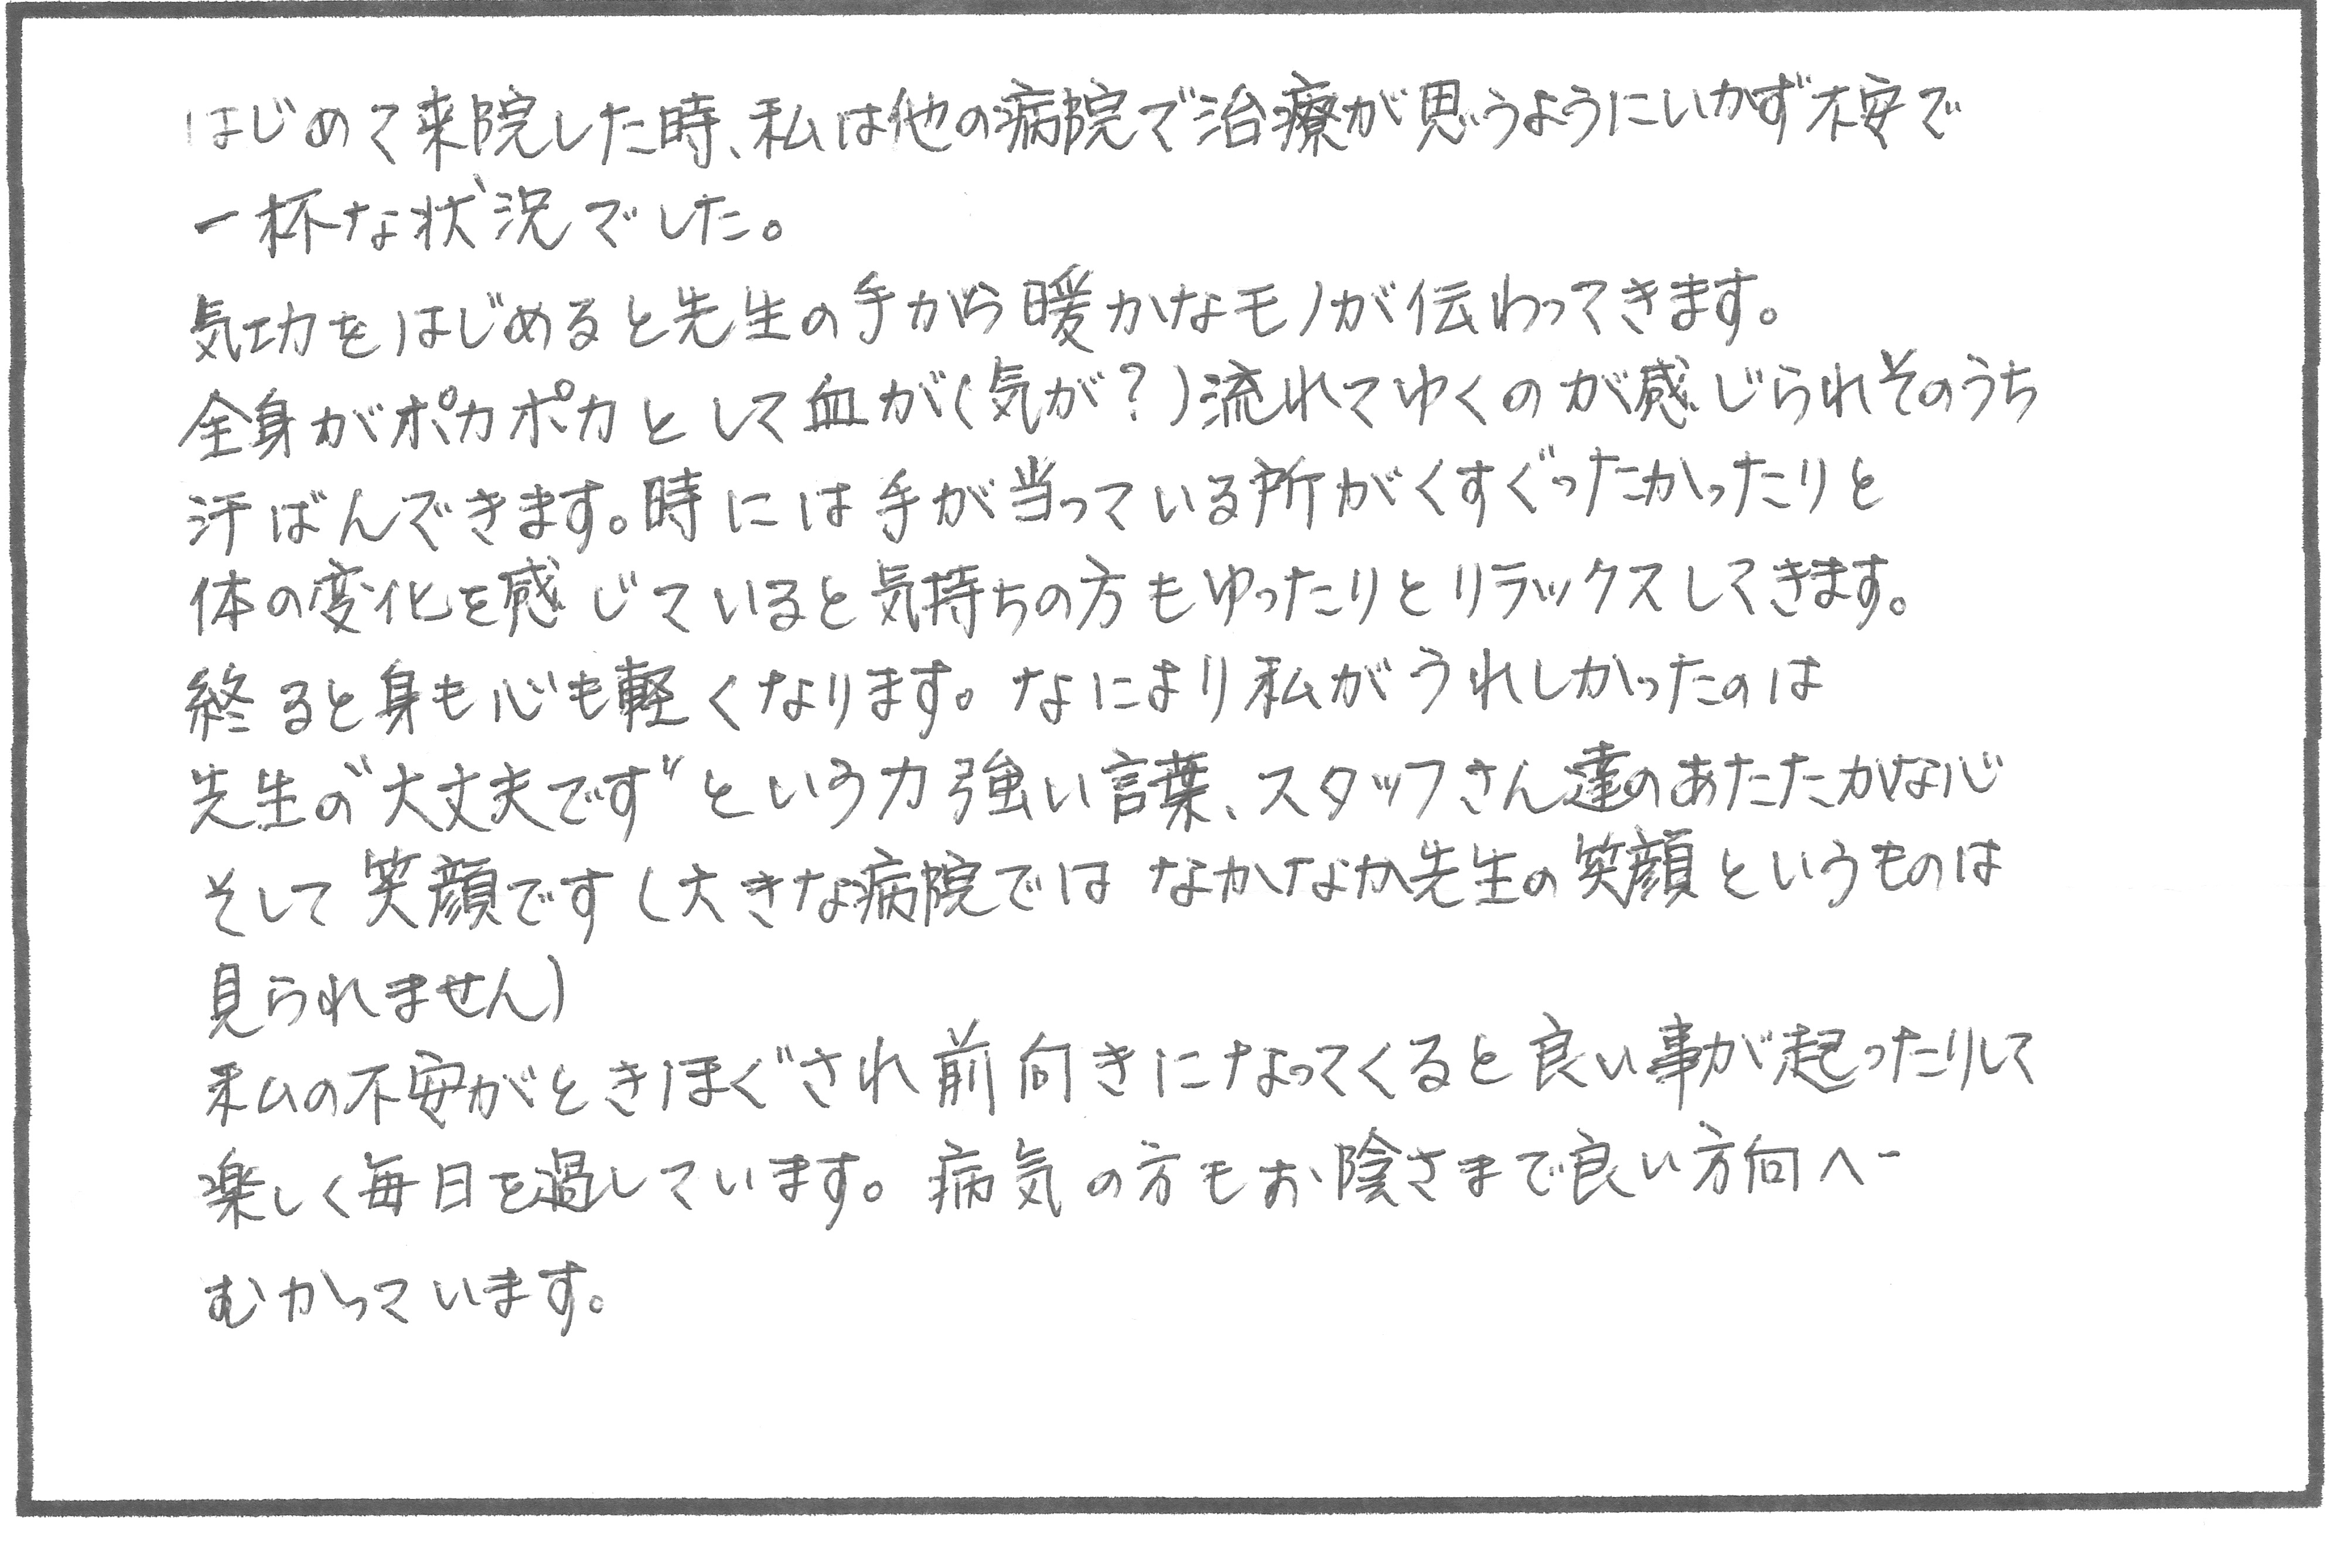 はじめて来院した時、私は他の病院で治療が思うようにいかず不安で
一杯な状況でした。
気功をはじめると先生の手から暖かなモノが伝わってきます。
全身がポカポカとして血が(気が?)流れてゆくのが感じられそのうち
汗ばんできます。時には手が当っている所がくすぐったかったりと
体の変化を感じていると気持ちの方もゆったりとリラックスしてきます。
終ると身も心も軽くなります。なにより私がうれしかったのは
先生の“大丈夫です”という力強い言葉、スタッフさん達のあたたかな心
そして笑顔です(大きな病院ではなかなか先生の笑顔というものは
見られません)
私の不安がときほぐされ前向きになってくると良い事が起ったりして
楽しく毎日を過しています。病気の方もお陰さまで良い方向へ-
むかっています。